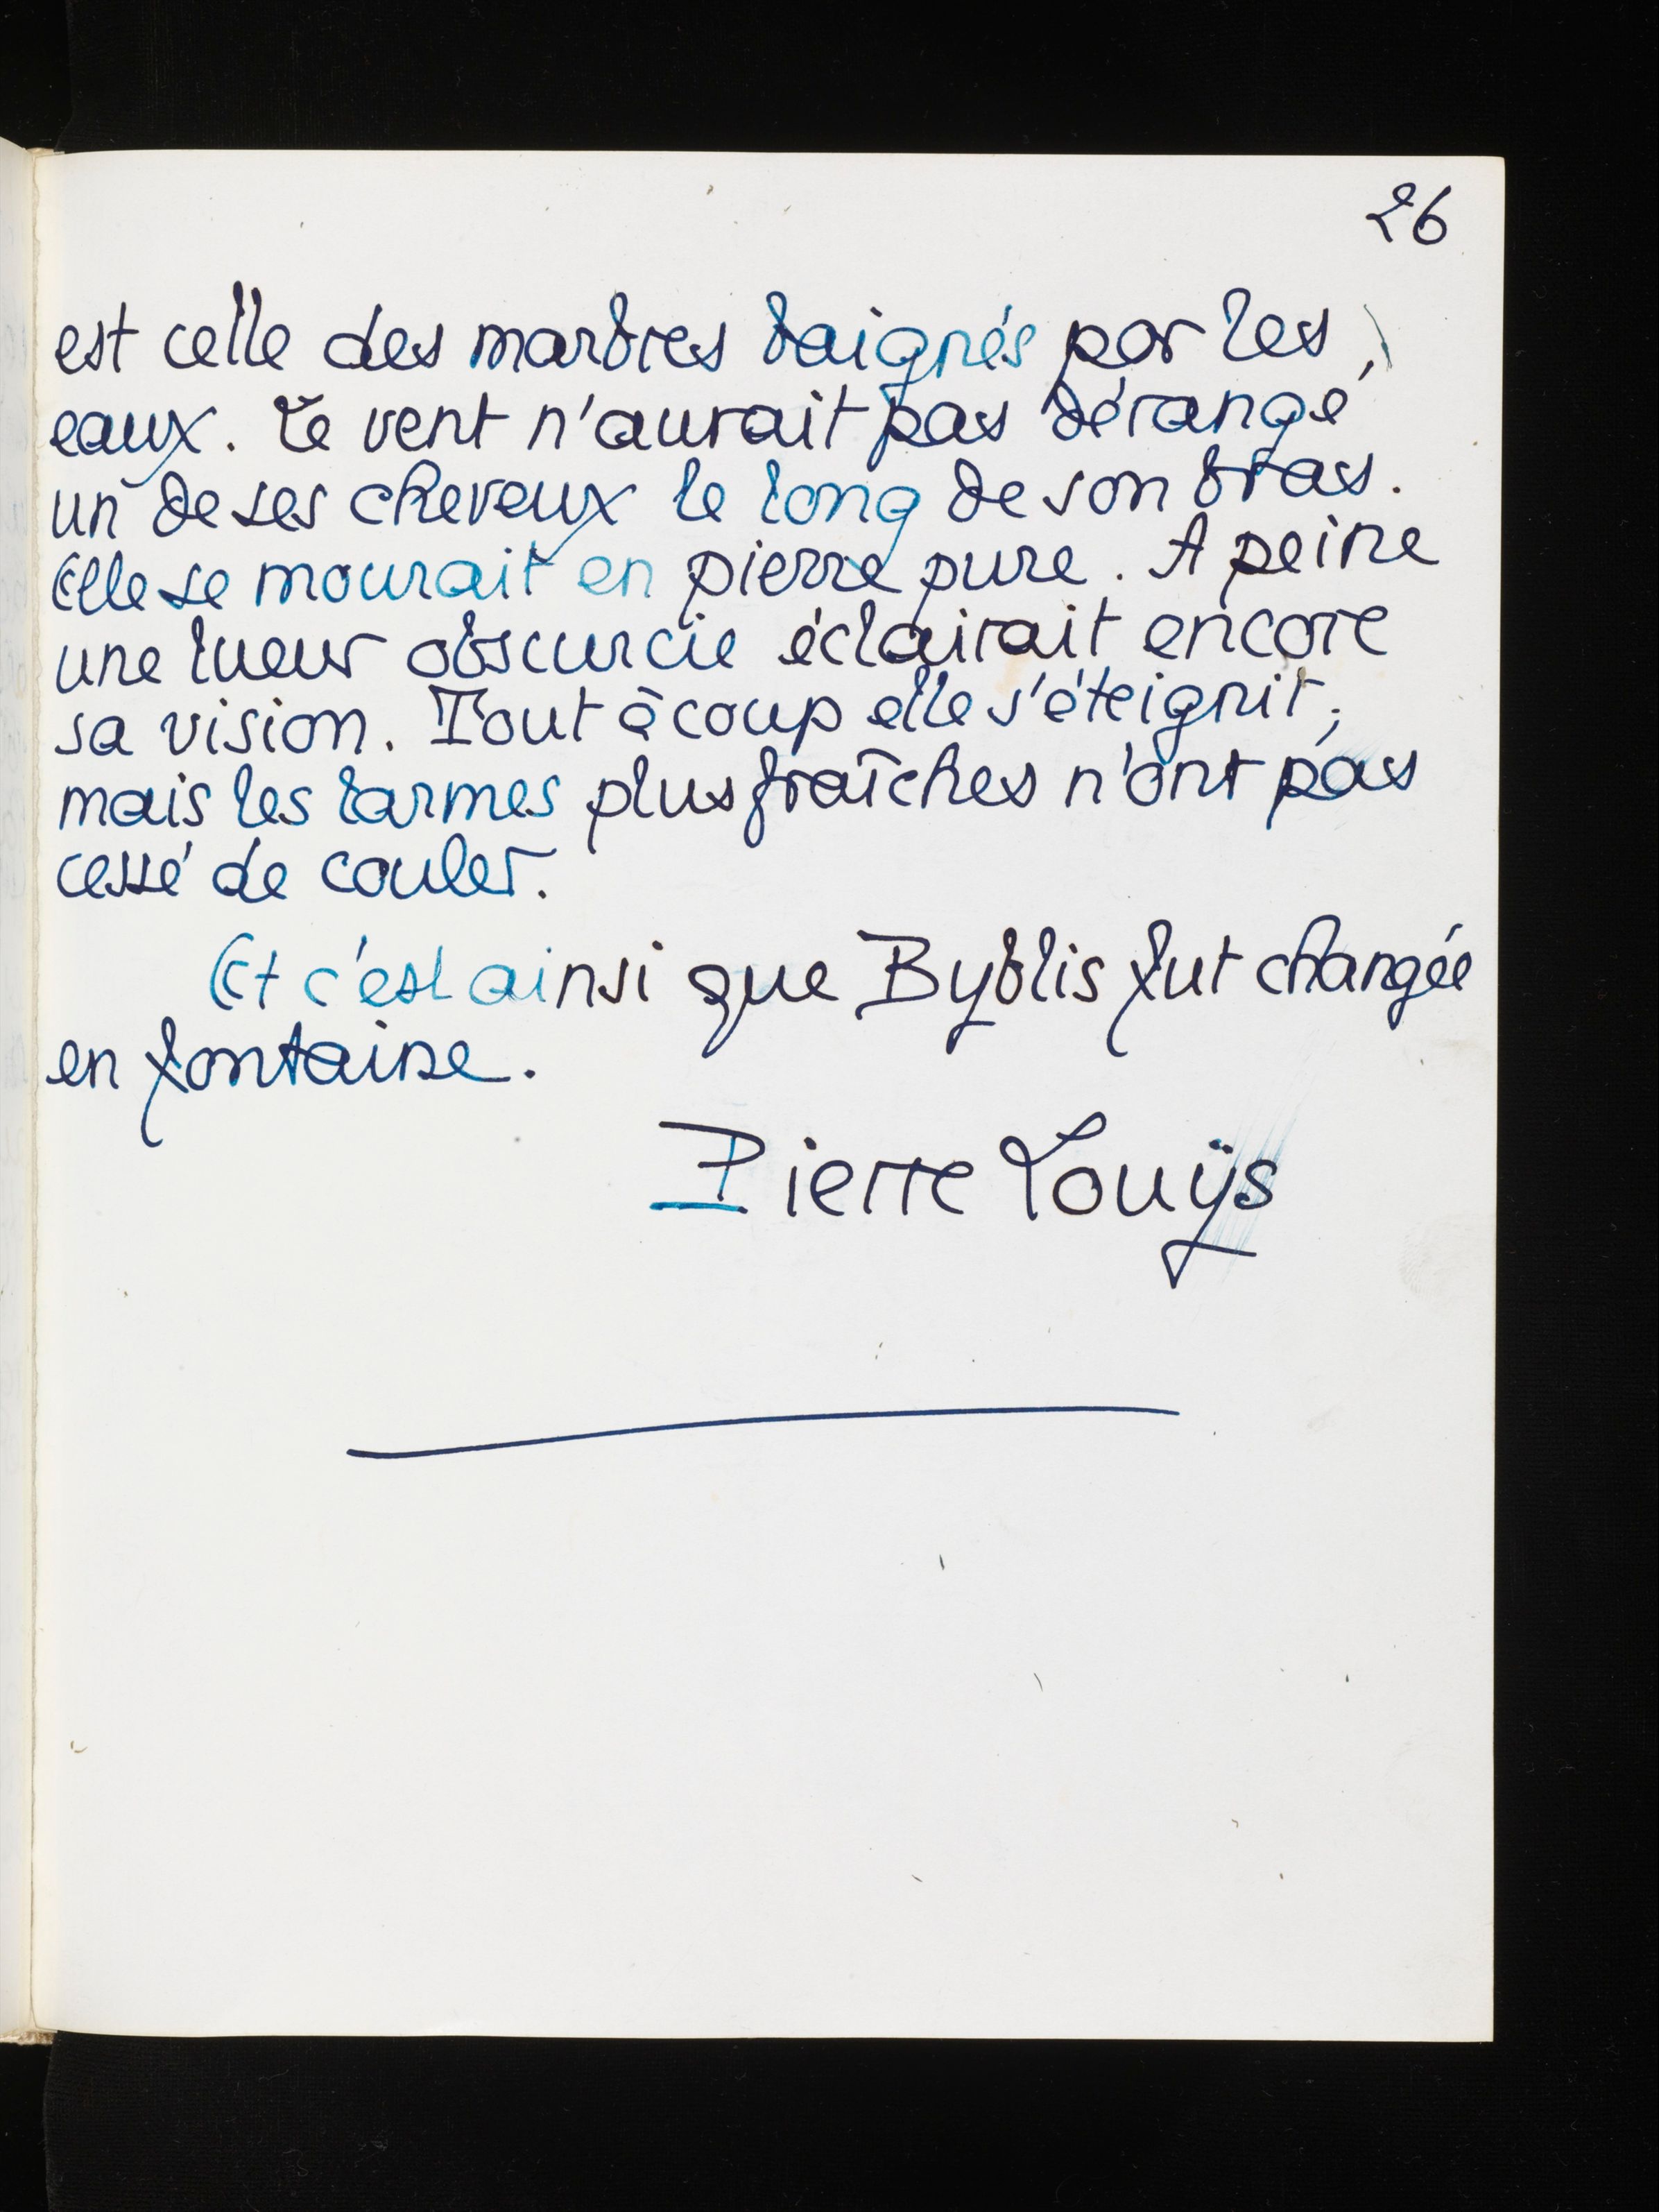 26
est celle des marbres baignés par les
eaux. Le vent n'aurait pas dérangé
un de ses cheveux le long de son bras.
Elle se mourait en pierre pure. A peine
une lueur obscurcie éclairait encore
sa vision. Tout à coup elle s'éteignit ;
mais les larmes plus fraîches n'ont pas
cessé de couler.
Et c'est ainsi que Byblis fut changée
en fontaine.
Pierre Louÿs